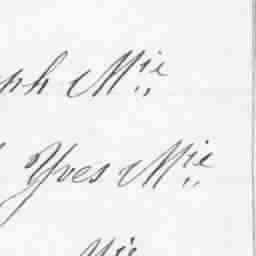 ph Mie
Yves Mie
Mie